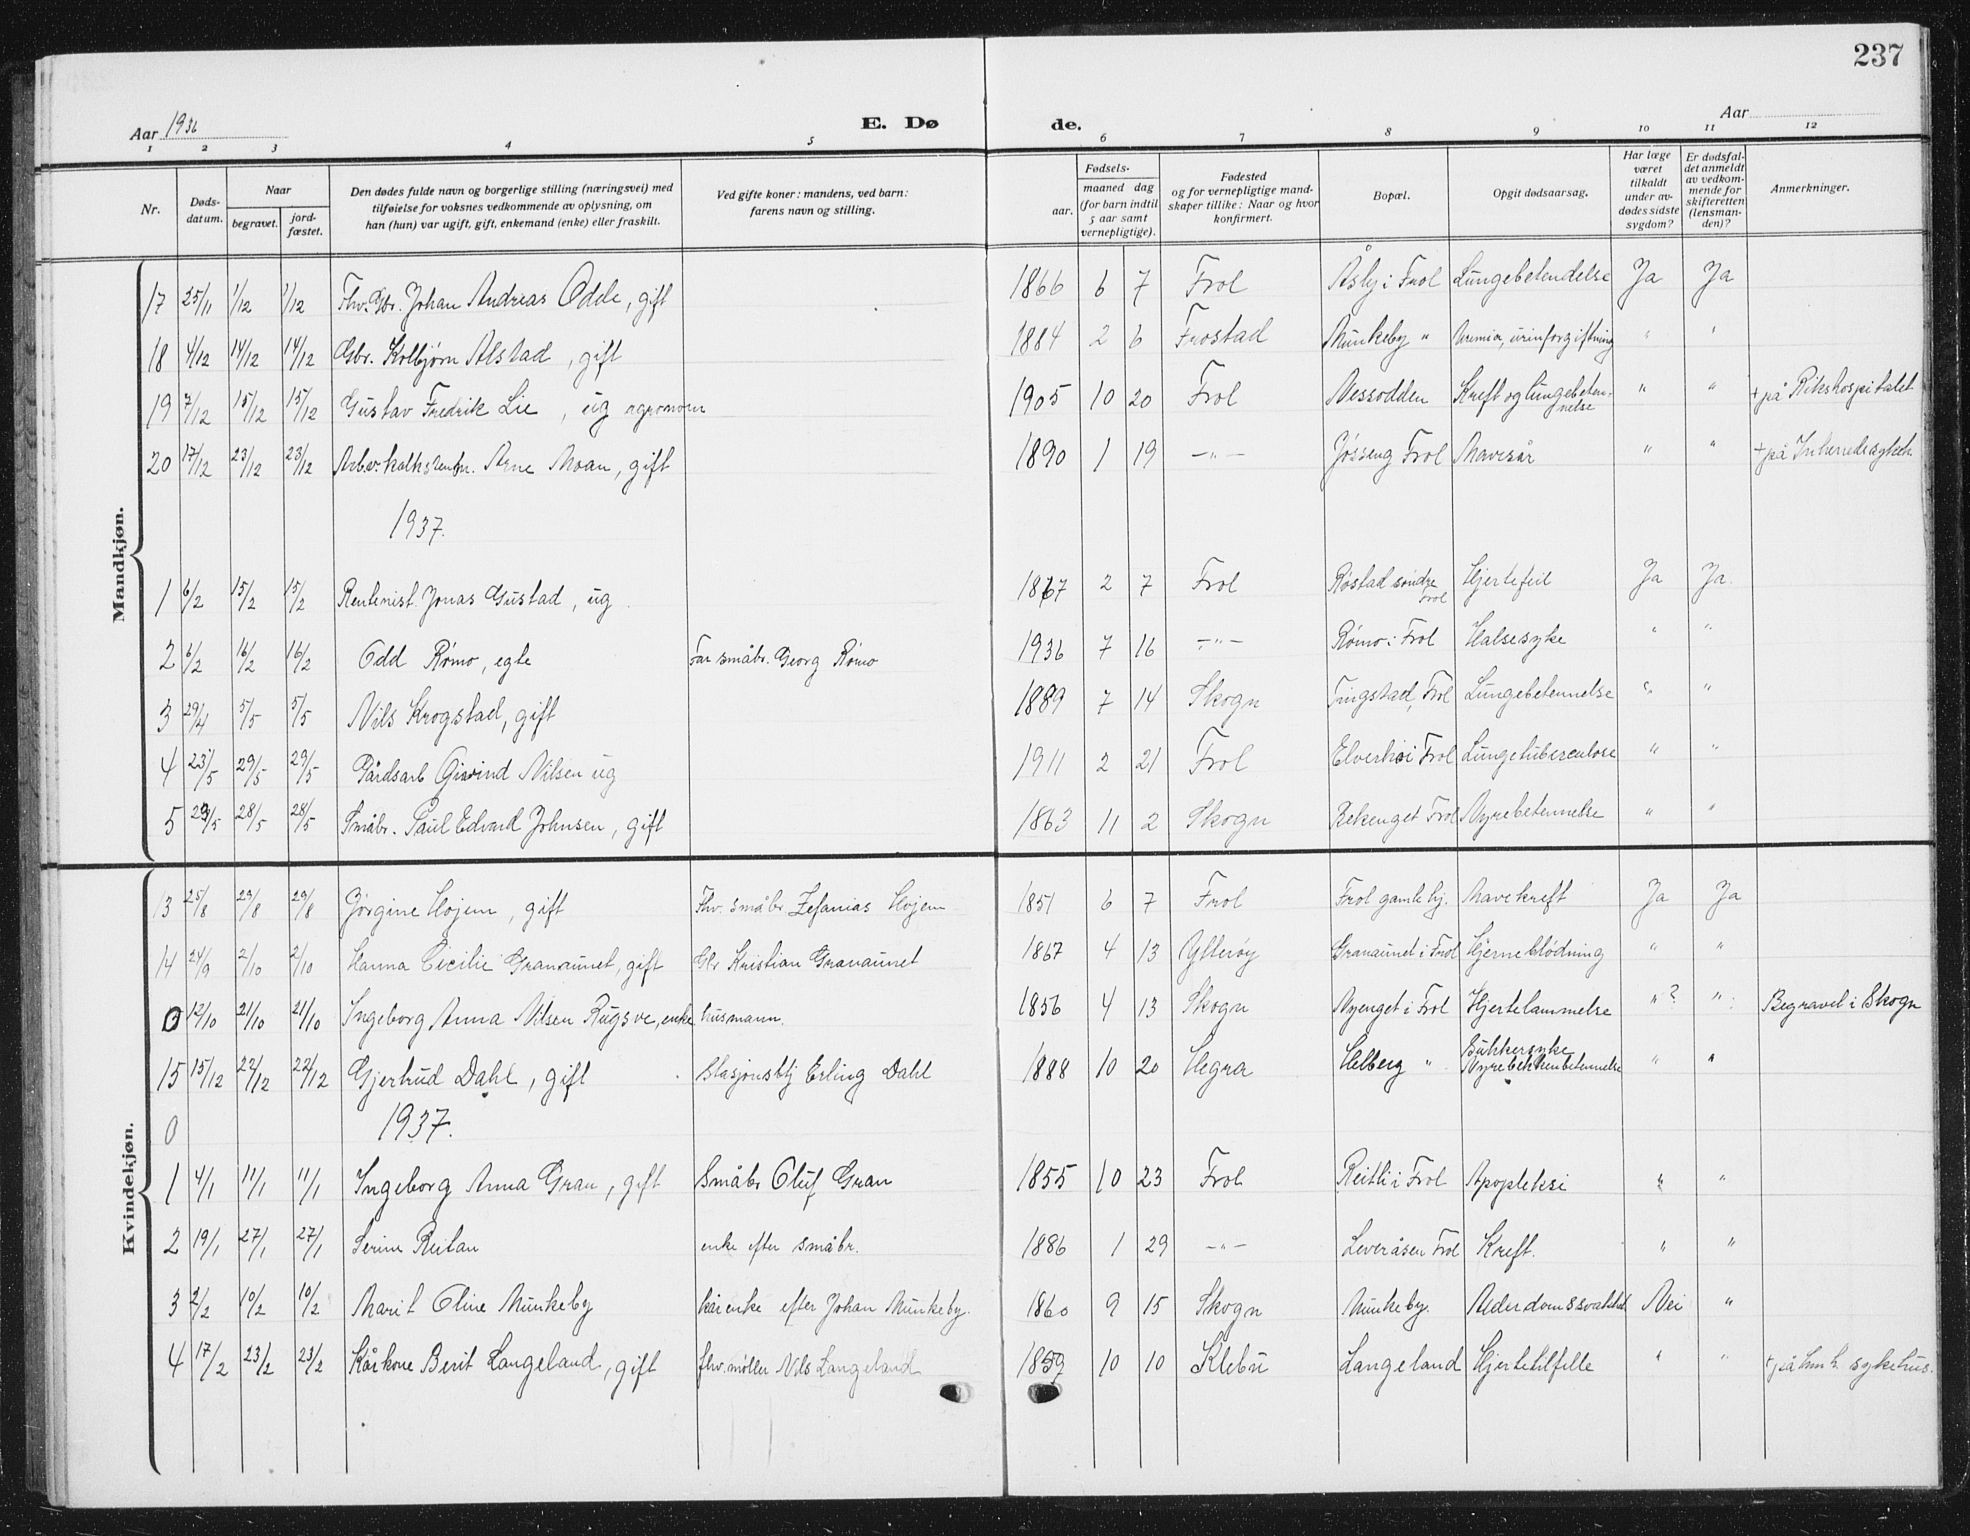 237
Aar 1936 E. Dø de. Aar
1 2 3 4 5 6 7 8 9 10 11 12
Nr.
Døds-
datum.
Naar
begravet.
jord-
fæstet.
Den dødes fulde navn og borgerlige stilling (næringsvei) med
tilføielse for voksnes vedkommende av oplysning, om
han (hun) var ugift, gift, enkemand (enke) eller fraskilt.
Ved gifte koner: mandens, ved barn:
farens navn og stilling.
Fødsels-
aar.
maaned dag
(for barn indtil
5 aar samt
vernepligtige).
Fødested
og for vernepligtige mand-
skaper tillike: Naar og hvor
konfirmert.
Bopæl.
Opgit dødsaarsag.
Har læge
været
tilkaldt
under av-
dødes sidste
sygdom?
Er dødsfal-
det anmeldt
av vedkom-
mende for
skifteretten
(lensman-
den)?
Anmerkninger.
Mandkjøn.
17 25/11 1/12 1/12 Fhv. Gbr. Johan Andreas Odde, gift 1866 6 7 Frol Åsby i Frol Lungebetendelse Ja Ja
18 4/12 14/12 14/12 Gbr. Kolbjørn Alstad, gift 1884 2 6 Frostad Munkeby " Uremia, urinforgiftning " "
19 7/12 15/12 15/12 Gustav Fredrik Lie, ug agronom 1905 10 20 Frol Nessodden Kreft og lungebeten-
nelse " " + på Rikshospitalet
20 17/12 23/12 23/12 Arne Moan, gift 1890 1 19 —"— Jøsseng Frol Mavesår " " + på
1937.
1 6/2 15/2 15/2 Rentenist Jonas Gustad, ug 1867 2 7 Frol Røstad søndre
Frol Hjertefeil Ja Ja.
2 6/2 16/2 16/2 Odd Rømo, egte Far småbr. Georg Rømo 1936 7 16 —"— Rømo i Frol Halsesyke " "
3 29/4 5/5 5/5 Nils Krogstad, gift 1889 7 14 Skogn Tingstad, Frol Lungebetennelse " "
4 23/5 29/5 29/5 Gårdsarb Nilsen ug 1911 2 21 Frol Elverhøi Frol Lungetuberculose " "
5 23/5 28/5 28/5 Småbr. Paul Edvard Johnsen, gift 1863 11 2 Skogn Rekenget Frol Nyrebetennelse " "
Kvindekjøn.
13 25/8 29/8 29/8 Jørgine Hojem, gift Fhv. småbr Zefanias Hojem 1851 6 7 Frol Frol gamle hj. Mavekreft Ja Ja
14 24/9 2/10 2/10 Hanna Cicilie Granaunet, gift Gbr Kristian Granaunet 1867 4 13 Ytterøy Granaunet i Frol Hjerneblødning " "
0 12/10 21/10 21/10 Ingeborg Anna Nilsen Rugsve, enke husmann. 1856 4 13 Skogn Nyenget i Frol Hjertelammelse "? " Begravet i Skogn
15 15/12 22/12 22/12 Gjertrud Dahl, gift Erling Dahl 1888 10 20 Hegra Helberg " Sukkersyke
Nyrebekkenbetennelse " "
0 1937.
1 4/1 11/1 11/1 Ingeborg Anna Gran, gift Småbr Oluf Gran 1855 10 23 Frol Reitli i Frol Apopleksi " "
2 19/1 27/1 27/1 Serine Reitan enke efter småbr. 1886 1 29 —"— Leveråsen Frol Kreft. " "
3 2/2 10/2 10/2 Marit Oline Munkeby kårenke efter Johan Munkeby. 1860 9 15 Skogn Munkeby. Nei "
4 17/2 23/2 23/2 Kårkone Berit Langeland, gift fhv. møller Nils Langeland 1859 10 10 Klebu Langeland Hjertetilfelle " " + på Innh. sykehus.